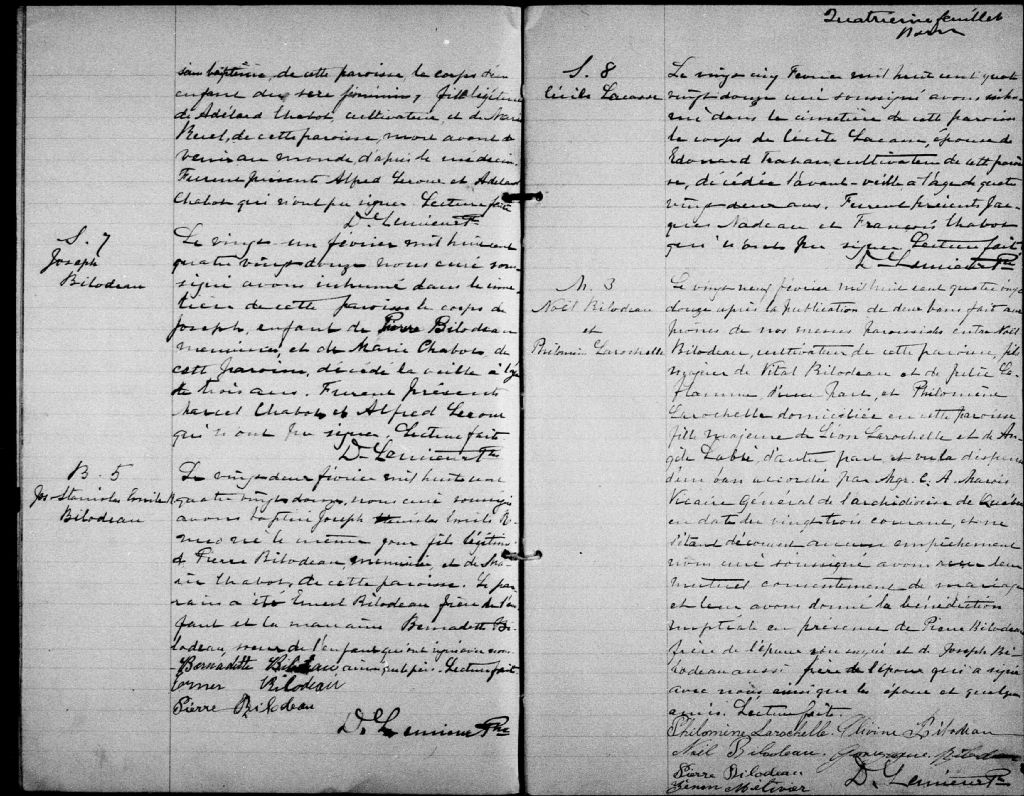 sans baptême, de cette paroisse, le corps d'un
enfant du sexe féminin, fille légitime
de Adélard Chabot, cultivateur, et de Marie
de cette paroisse, mort avant de
venir au monde, d'après le médecin.
Furent présents Alfred et Adélard
Chabot qui n'ont pu signer. Lecture faite
D. Lemieux Ptre
S. 7
Joseph
Bilodeau
Le vingt-un février mil huit cent
quatre vingt douze nous curé sous-
signé avons inhumé dans le cime-
tière de cette paroisse le corps de
Joseph, enfant de Pierre Bilodeau
menuisier, et de Marie Chabot, de
cette paroisse, décédé la veille à l'âge
de trois ans. Furent présents
Marcel Chabot et Alfred
qui n'ont pu signer. Lecture faite
D. Lemieux Ptre
B. 5
Jos Stanislas Emile
Bilodeau
Le vingt deux février mil huit cent
quatre vingt douze, nous curé soussigné
avons baptisé Joseph Stanislas Emile
né le même jour fils légitime
de Pierre Bilodeau, menuisier, et de Ma-
rie Chabot, de cette paroisse. Le par-
rain a été Ernest Bilodeau frère de l'en-
fant et la marraine Bernadette Bi-
lodeau, soeur de l'enfant qui ont signé avec nous
Bernadette Bilodeau ainsi que le père. Lecture faite
Bilodeau
Pierre Bilodeau
D. Lemieux Ptre
Quatrième feuillet
S. 8
Cécile Lacasse
Le vingt cinq Février mil huit cent quatre
vingt douze curé soussigné avons inhu-
mé dans le cimetière de cette paroisse
le corps de Cécile Lacasse, épouse de
Edouard cultivateur de cette parois-
se, décédée l'avant-veille à l'âge de quatre
vingt deux ans. Furent présents Jac-
ques Nadeau et François Chabot
qui n'ont pu signer Lecture faite
D. Lemieux Ptre
M. 3
Noël Bilodeau
et
Philomène Larochelle
Le vingt neuf février mil huit cent quatre vingt
douze après la publication de deux bans fait aux
prônes de nos messes paroissiales entre Noël
Bilodeau, cultivateur de cette paroisse, fils
majeur de Vital Bilodeau et de La-
flamme d'une part, et Philomène
Larochelle domiciliée en cette paroisse
fille majeure de Léon Larochelle et de An-
gèle Labbé, d'autre part et vu la dispense
d'un ban accordée par Mgr. C. A. Marois
Vicaire Général de l'archidiocèse de Québec
en date du vingt trois courant, et ne
s'étant découvert aucun empêchement
nous curé soussigné avons reçu leur
mutuel consentement de mariage
et leur avons donné la bénédiction
nuptiale en présence de Pierre Bilodeau
frère de l'époux soussigné et de Joseph Bi-
lodeau aussi frère de l'époux qui a signé
avec nous ainsi que les époux et quelques
amis. Lecture faite.
Philomène Larochelle Olivine Bilodeau
Noël Bilodeau. Bilodeau
Pierre Bilodeau
D. Lemieux Ptre